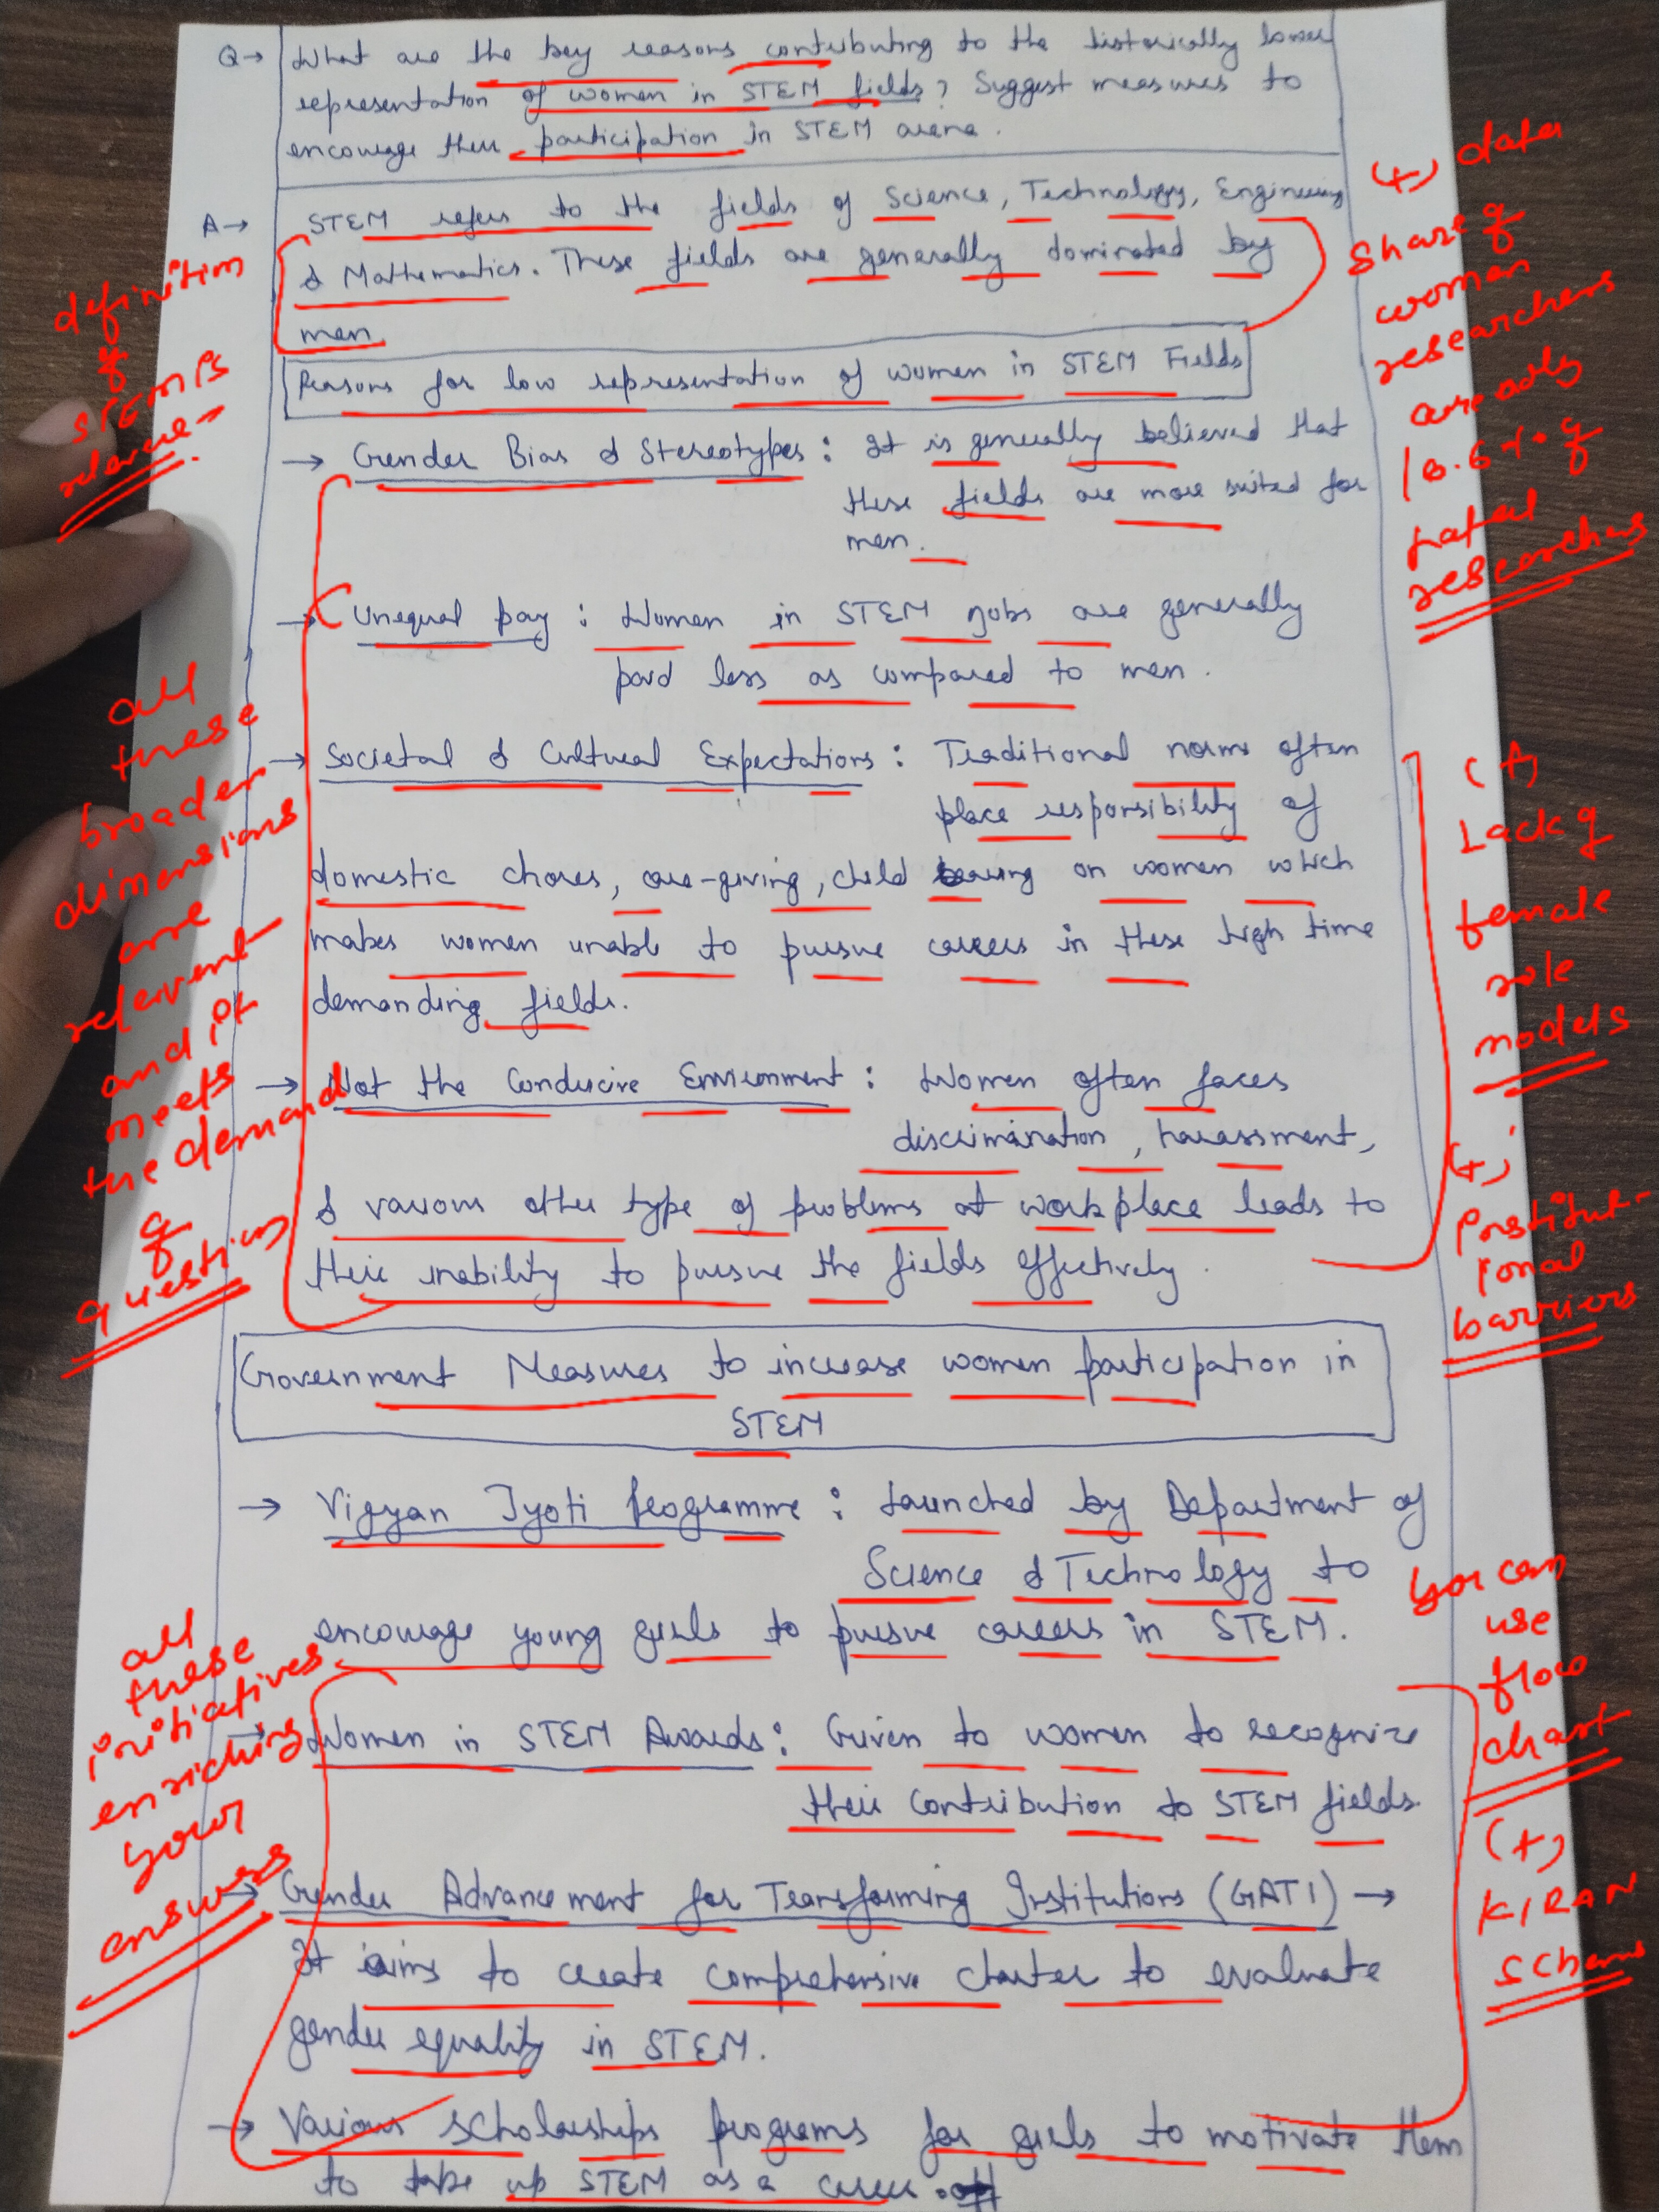 Q→ What are the key reasons contributing to the historically lower
representation of women in STEM fields? Suggest measures to
encourage their participation in STEM arena.
A→ STEM refers to the fields of Science, Technology, Engineering
& Mathematics. These fields are generally dominated by
men.
definition
of
STEM is
(+) data
share of
women
researchers
are only
of
total
researchers
Reasons for low representation of women in STEM Fields
→ Gender Bias & Stereotypes: It is generally believed that
these fields are more suited for
men.
→ Unequal pay: Women in STEM jobs are generally
paid less as compared to men.
→ Societal & Cultural Expectations: Traditional norms often
place responsibility of
domestic chores, care-giving, child on women which
makes women unable to pursue careers in these high time
demanding fields.
→ Not the Conducive Environment: Women often faces
discrimination, harassment,
& various other type of problems at workplace leads to
their inability to pursue the fields effectively.
all
these
broader
dimensions
are
relevent
and it
meets
the demand
of
question
(+)
Lack of
female
role
models
(+)
institut-
ional
barriers
Government Measures to increase women participation in
STEM
→ Vigyan Jyoti Programme: Launched by Department of
Science & Technology to
encourage young girls to pursue careers in STEM.
→ Women in STEM Awards: Given to women to recognize
their contribution to STEM fields.
→ Gender Advancement for Transforming Institutions (GATI) →
It aims to create comprehensive charter to evaluate
gender equality in STEM.
→ Various scholarships programs for girls to motivate them
to take up STEM as a career.
all
these
initiatives
enriching
your
answers
you can
use
flow
chart
(+)
KIRAN
scheme